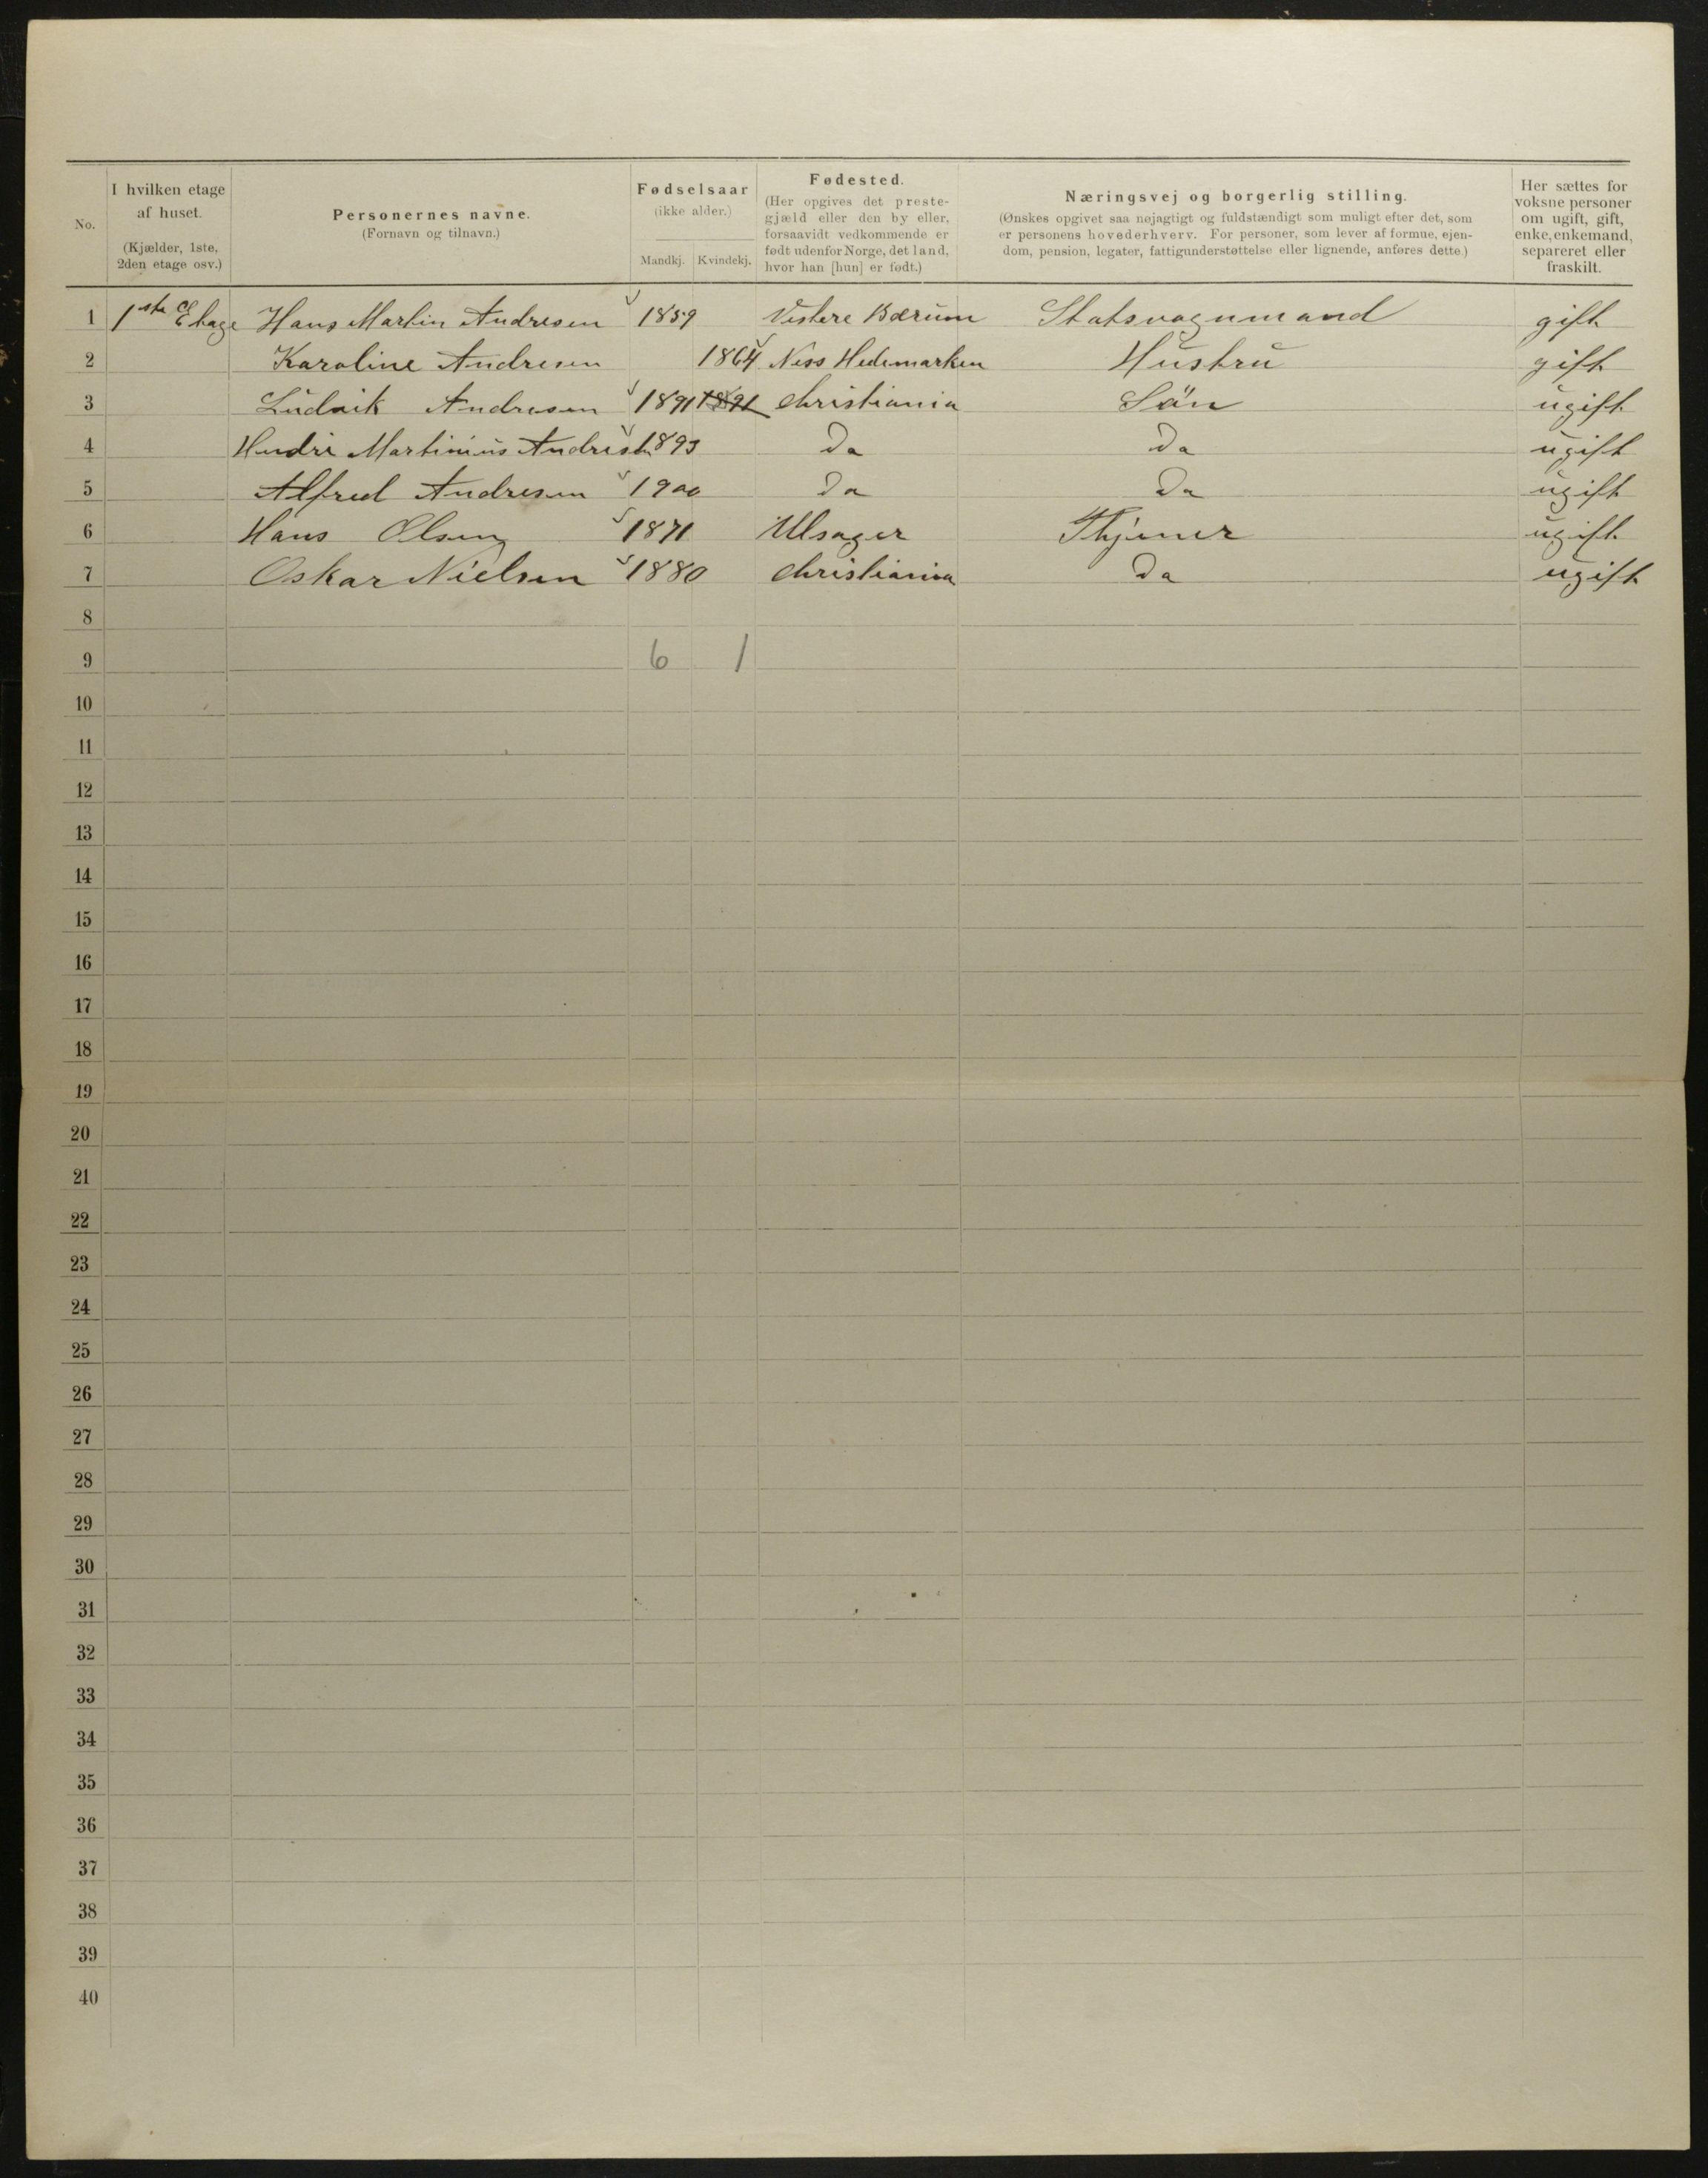 No.
I hvilken etage af huset. (Kjælder, 1ste, 2den etage osv.)
Personernes navne. (Fornavn og tilnavn.)
Fødselsaar (ikke alder.) Mandkj. Kvindekj.
Fødested. (Her opgives det prestegjæld eller den by eller, forsaavidt vedkommende er født udenfor Norge, det land, hvor han [hun] er født.)
Næringsvej og borgerlig stilling.
(Ønskes opgivet saa nøjagtigt og fuldstændigt som muligt efter det, som
er personens hovederhverv. For personer, som lever af formue, ejen-
dom, pension, legater, fattigunderstøttelse eller lignende, anføres dette.)
Her sættes for voksne personer om ugift, gift, enke, enkemand, separeret eller fraskilt.
1 1ste Etage Hans Martin Andresen 1859 Vestere Bærum Statsvognmand gift
2 Karoline Andresen 1864 Ness Hedemarken Hustru gift
3 Ludvik Andresen 1891 1891 Christiania Sön ugift
4 Martinius Andresen 1893 Do Do ugift
5 Alfred Andresen 1900 Do Do ugift
6 Hans Olsen 1871 Ulsager Thjener ugift
7 Oskar Nielsen 1880 Christiania Do ugift
8
9 6 1
10
11
12
13
14
15
16
17
18
19
20
21
22
23
24
25
26
27
28
29
30
31
32
33
34
35
36
37
38
39
40